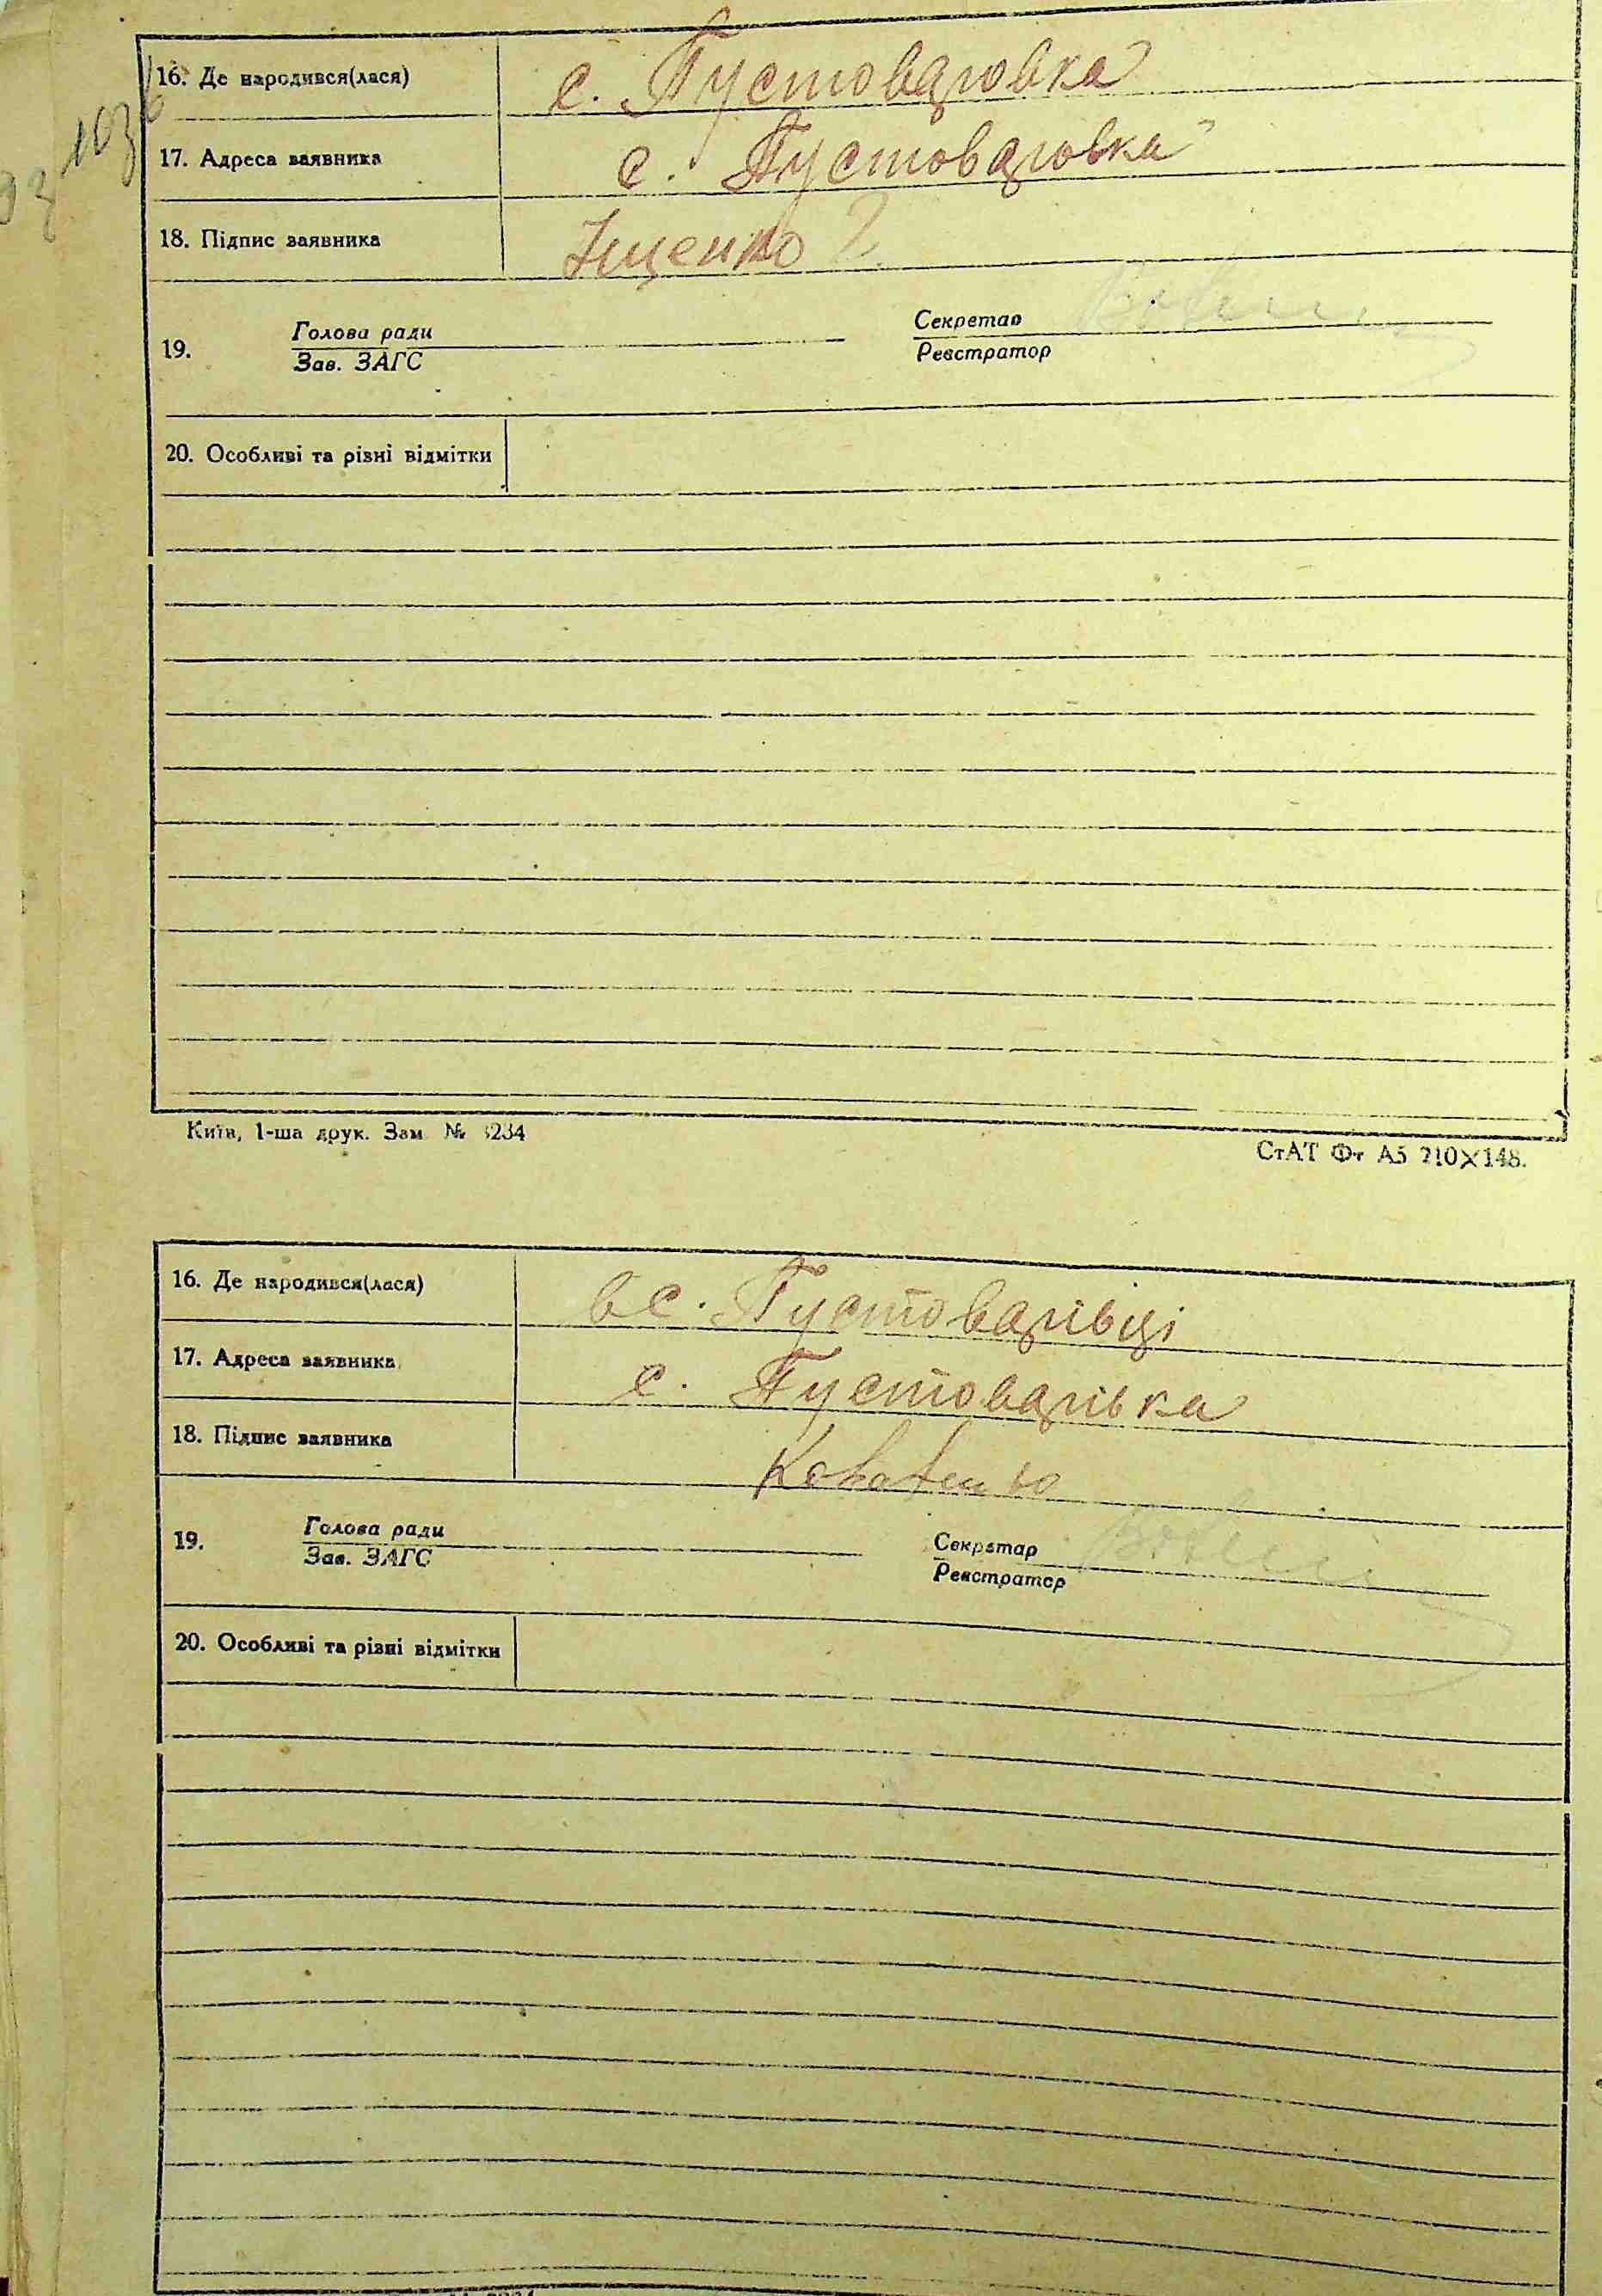 16. Де народився(лася) с. Пустоваровка
17. Адреса заявника с. Пустоваровка
18. Підпис заявника Іщенко
19. Голова ради Секретар
Зав. ЗАГС Реєстратор
20. Особливі та різні відмітки
Київ, 1-ша друк. Зам № 3234
СтАТ Фт А5 210×148.
16. Де народився(лася) в с. Пустоварівці
17. Адреса заявника с. Пустоварівка
18. Підпис заявника Коваленко
19. Голова ради Секретар
Зав. ЗАГС Реєстратор
20. Особливі та різні відмітки